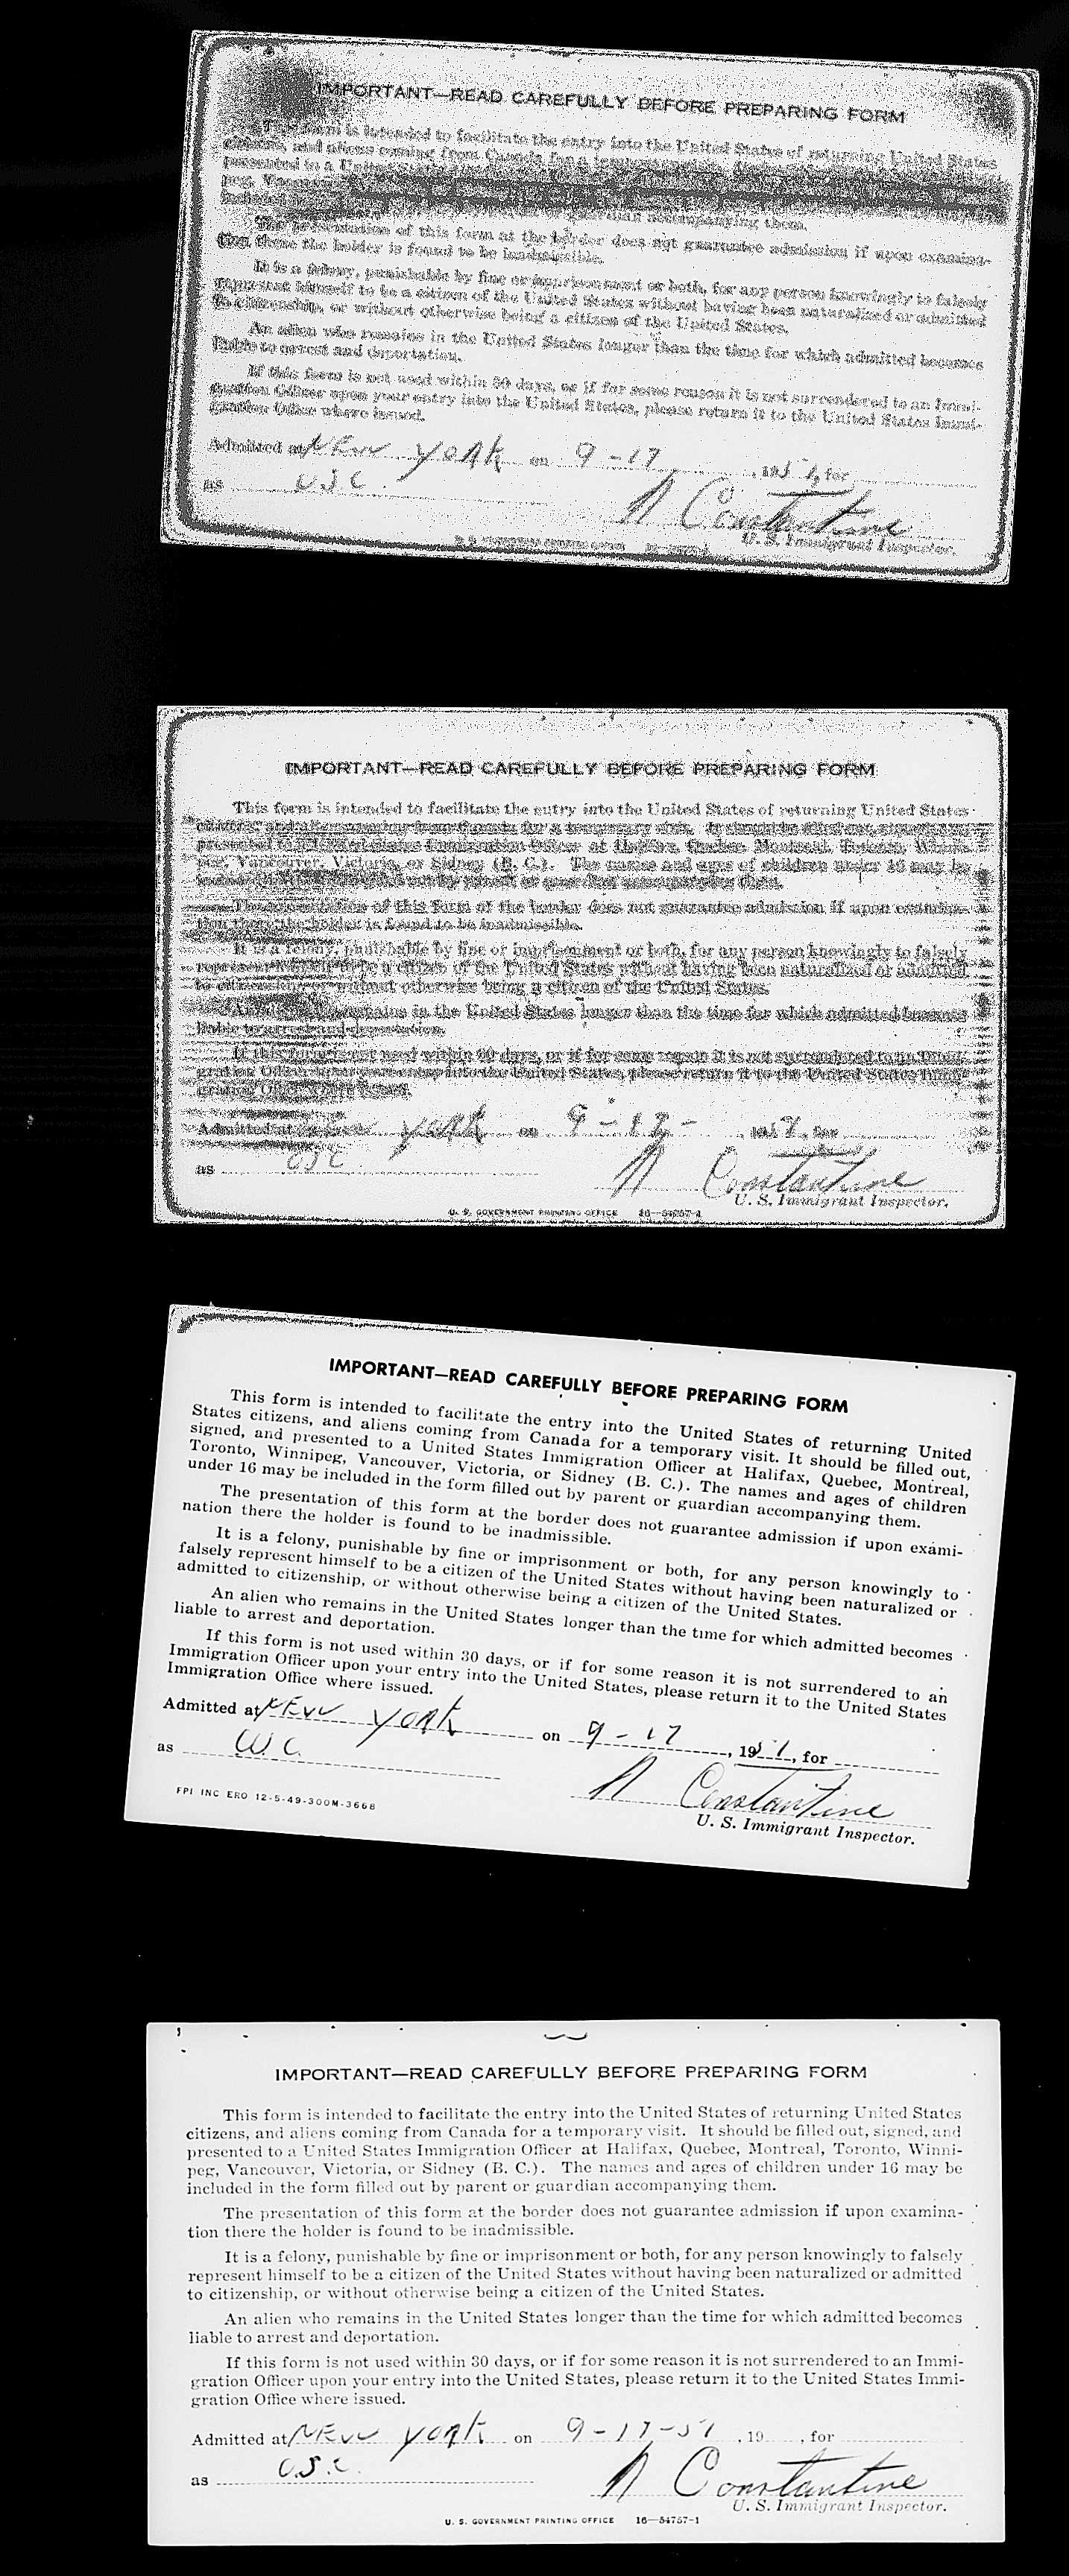 IMPORTANT—READ CAREFULLY BEFORE PREPARING FORM
This form is intended to facilitate the entry into the United States of returning United States
citizens, and aliens coming from Canada for a temporary
presented to a United
peg, Vancouver
included
than accompanying them.
The presentation of this form at the border does not guarantee admission if upon examina-
tion there the holder is found to be inadmissible.
It is a felony, punishable by fine or imprisonment or both, for any person knowingly to falsely
represent himself to be a citizen of the United States without having been naturalized or admitted
to citizenship, or without otherwise being a citizen of the United States.
An alien who remains in the United States longer than the time for which admitted becomes
liable to arrest and deportation.
If this form is not used within 30 days, or if for some reason it is not surrendered to an Immi-
gration Officer upon your entry into the United States, please return it to the United States Immi-
gration Office where issued.
Admitted at NEW YORK on 9-17, 1951, for
as U.S.C.
N Constantine
U. S. Immigrant Inspector.
IMPORTANT—READ CAREFULLY BEFORE PREPARING FORM
This form is intended to facilitate the entry into the United States of returning United States
citizens, and aliens coming from Canada for a temporary visit. It should be filled out, signed, and
presented to a United States Immigration Officer at Halifax, Quebec, Montreal, Toronto, Winni-
peg, Vancouver, Victoria, or Sidney (B. C.). The names and ages of children under 16 may be
included in the form filled out by parent or guardian accompanying them.
The presentation of this form at the border does not guarantee admission if upon examina-
tion there the holder is found to be inadmissible.
It is a felony, punishable by fine or imprisonment or both, for any person knowingly to falsely
represent himself to be a citizen of the United States without having been naturalized or admitted
to citizenship, or without otherwise being a citizen of the United States.
An alien who remains in the United States longer than the time for which admitted becomes
liable to arrest and deportation.
If this form is not used within 30 days, or if for some reason it is not surrendered to an Immi-
gration Officer upon your entry into the United States, please return it to the United States Immi-
gration Office where issued.
Admitted at NEW YORK on 9-17-, 1951, for
as USC
N Constantine
U. S. Immigrant Inspector.
U. S. GOVERNMENT PRINTING OFFICE 16—54757-1
IMPORTANT—READ CAREFULLY BEFORE PREPARING FORM
This form is intended to facilitate the entry into the United States of returning United
States citizens, and aliens coming from Canada for a temporary visit. It should be filled out,
signed, and presented to a United States Immigration Officer at Halifax, Quebec, Montreal,
Toronto, Winnipeg, Vancouver, Victoria, or Sidney (B. C.). The names and ages of children
under 16 may be included in the form filled out by parent or guardian accompanying them.
The presentation of this form at the border does not guarantee admission if upon exami-
nation there the holder is found to be inadmissible.
It is a felony, punishable by fine or imprisonment or both, for any person knowingly to
falsely represent himself to be a citizen of the United States without having been naturalized or
admitted to citizenship, or without otherwise being a citizen of the United States.
An alien who remains in the United States longer than the time for which admitted becomes
liable to arrest and deportation.
If this form is not used within 30 days, or if for some reason it is not surrendered to an
Immigration Officer upon your entry into the United States, please return it to the United States
Immigration Office where issued.
Admitted at NEW YORK on 9-17, 1951, for
as
N Constantine
U. S. Immigrant Inspector.
FPI INC ERO 12-5-49-300M-3668
IMPORTANT—READ CAREFULLY BEFORE PREPARING FORM
This form is intended to facilitate the entry into the United States of returning United States
citizens, and aliens coming from Canada for a temporary visit. It should be filled out, signed, and
presented to a United States Immigration Officer at Halifax, Quebec, Montreal, Toronto, Winni-
peg, Vancouver, Victoria, or Sidney (B. C.). The names and ages of children under 16 may be
included in the form filled out by parent or guardian accompanying them.
The presentation of this form at the border does not guarantee admission if upon examina-
tion there the holder is found to be inadmissible.
It is a felony, punishable by fine or imprisonment or both, for any person knowingly to falsely
represent himself to be a citizen of the United States without having been naturalized or admitted
to citizenship, or without otherwise being a citizen of the United States.
An alien who remains in the United States longer than the time for which admitted becomes
liable to arrest and deportation.
If this form is not used within 30 days, or if for some reason it is not surrendered to an Immi-
gration Officer upon your entry into the United States, please return it to the United States Immi-
gration Office where issued.
Admitted at NEW YORK on 9-17-51, 19 , for
as U.S.C.
N Constantine
U. S. Immigrant Inspector.
U. S. GOVERNMENT PRINTING OFFICE 16—54757-1